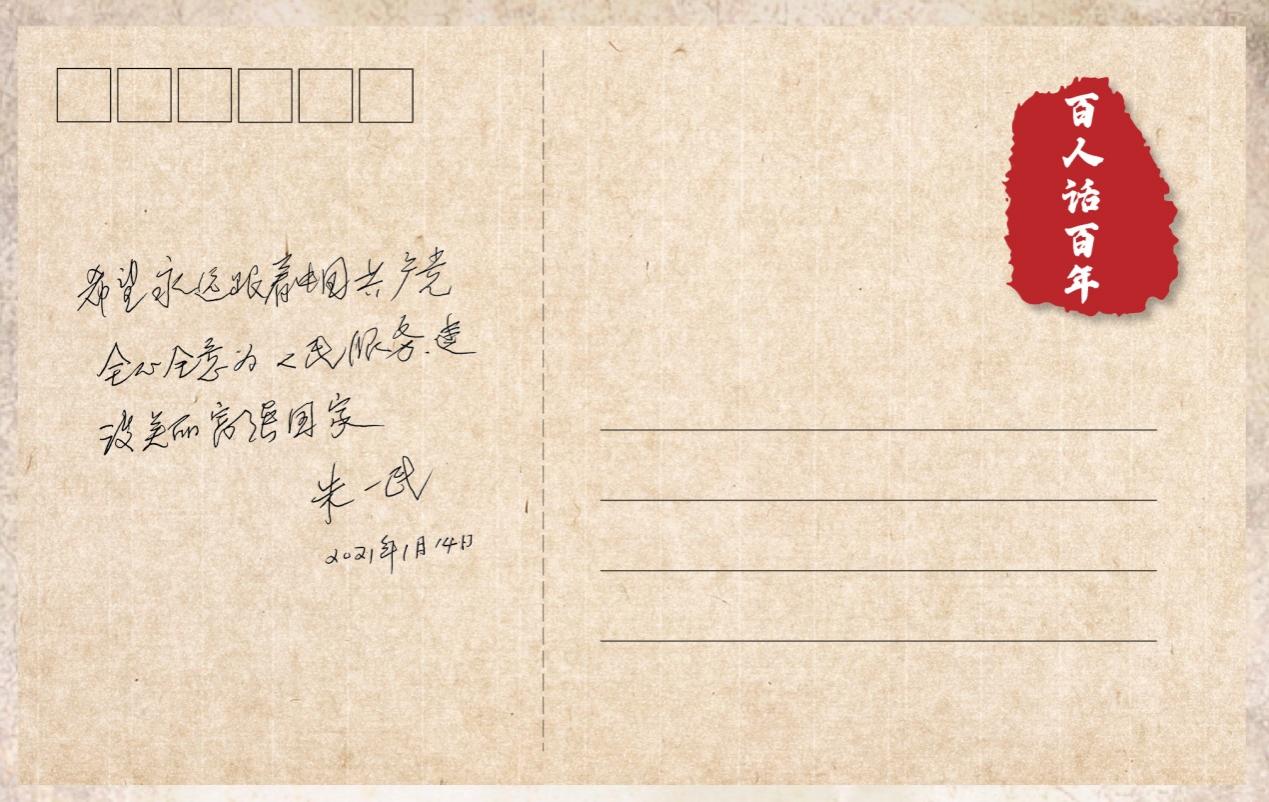 希望永远跟着中国共产党
全心全意为人民服务.建
设美丽富强国家
朱一民
2021年1月14日
百人话百年